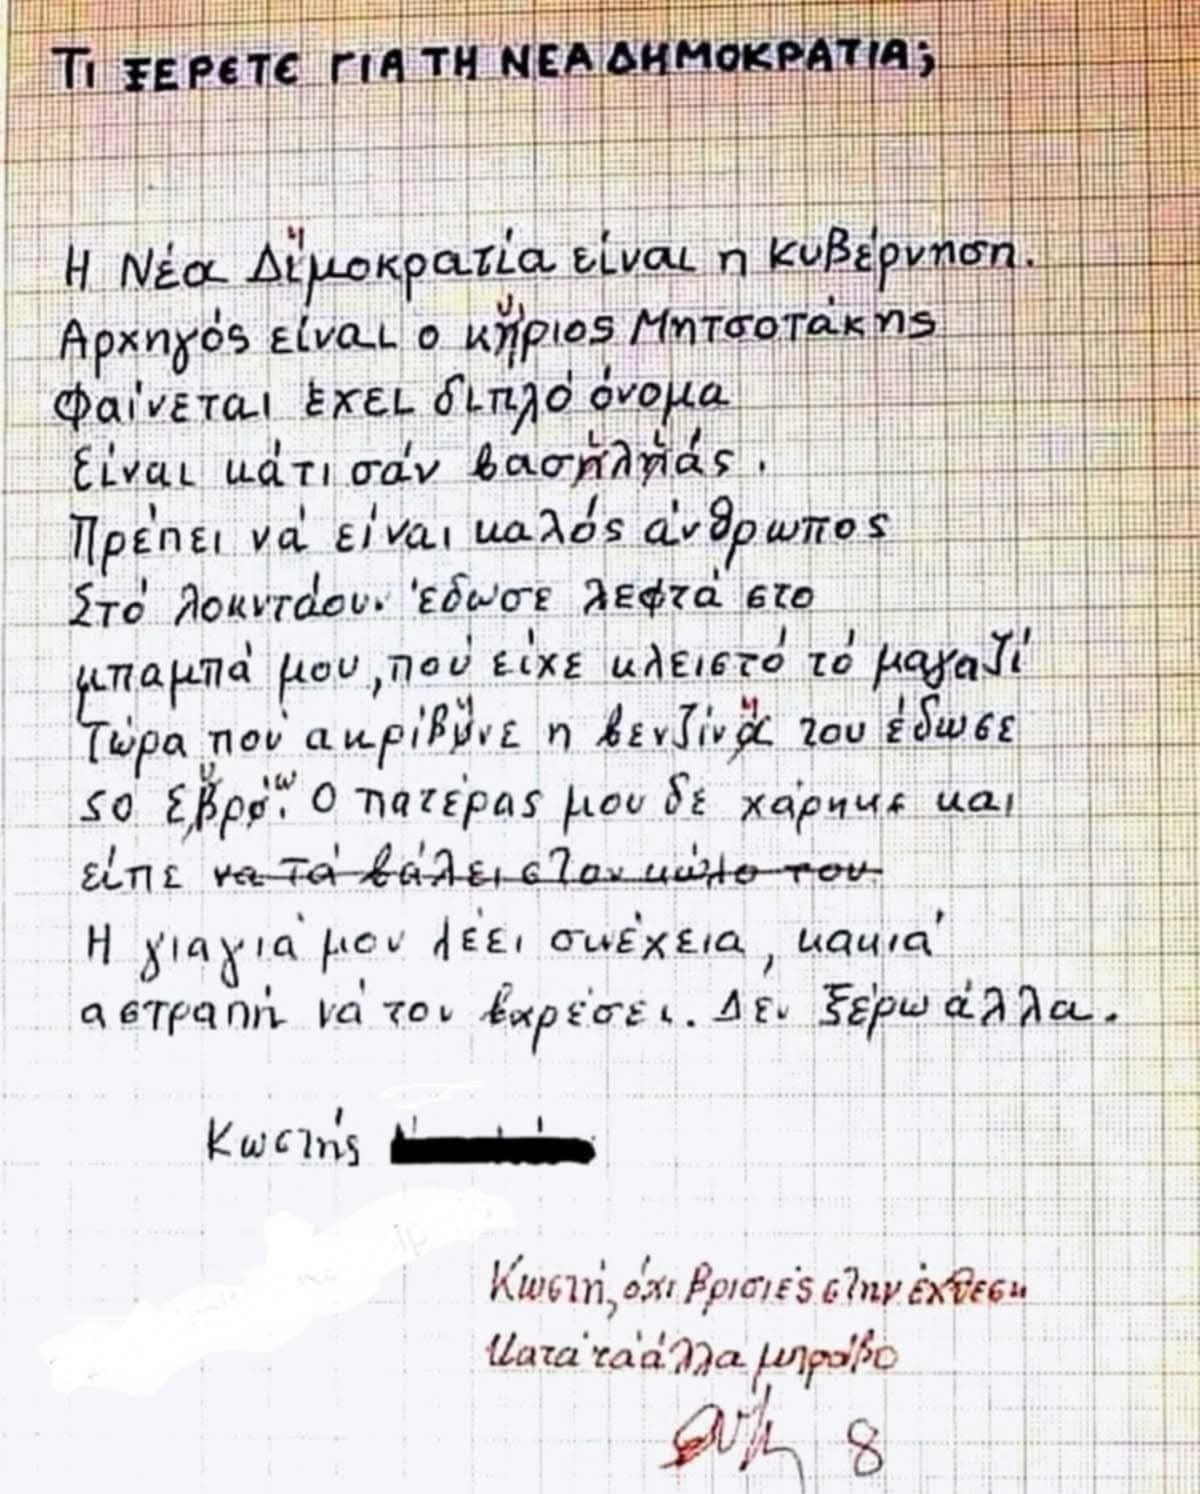 ΤΙ ΞΕΡΕΤΕ ΓΙΑ ΤΗ ΝΕΑ ΔΗΜΟΚΡΑΤΙΑ;
Η Νέα Δημοκρατία είναι η κυβέρνηση.
Αρχηγός είναι ο κύριος Μητσοτάκης
Φαίνεται έχει διπλό όνομα
Είναι κάτι σάν βασιλιάς.
Πρέπει νά είναι καλός άνθρωπος
Στό λοκντάουν έδωσε λεφτά στο
μπαμπά μου, πού είχε κλειστό τό μαγαζί
Τώρα πού ακρίβηνε η βενζίνη του έδωσε
50 Ευρώ. Ο πατέρας μου δε χάρηκε και
είπε να τά βάλει στον κώλο του
Η γιαγιά μου λέει συνέχεια, κακιά
αστραπή νά τον βαρέσει. Δέν ξέρω άλλα.
Κωστής
Κωστή, όχι βρισιές στην έκθεση
Κατά τα άλλα μπράβο
8